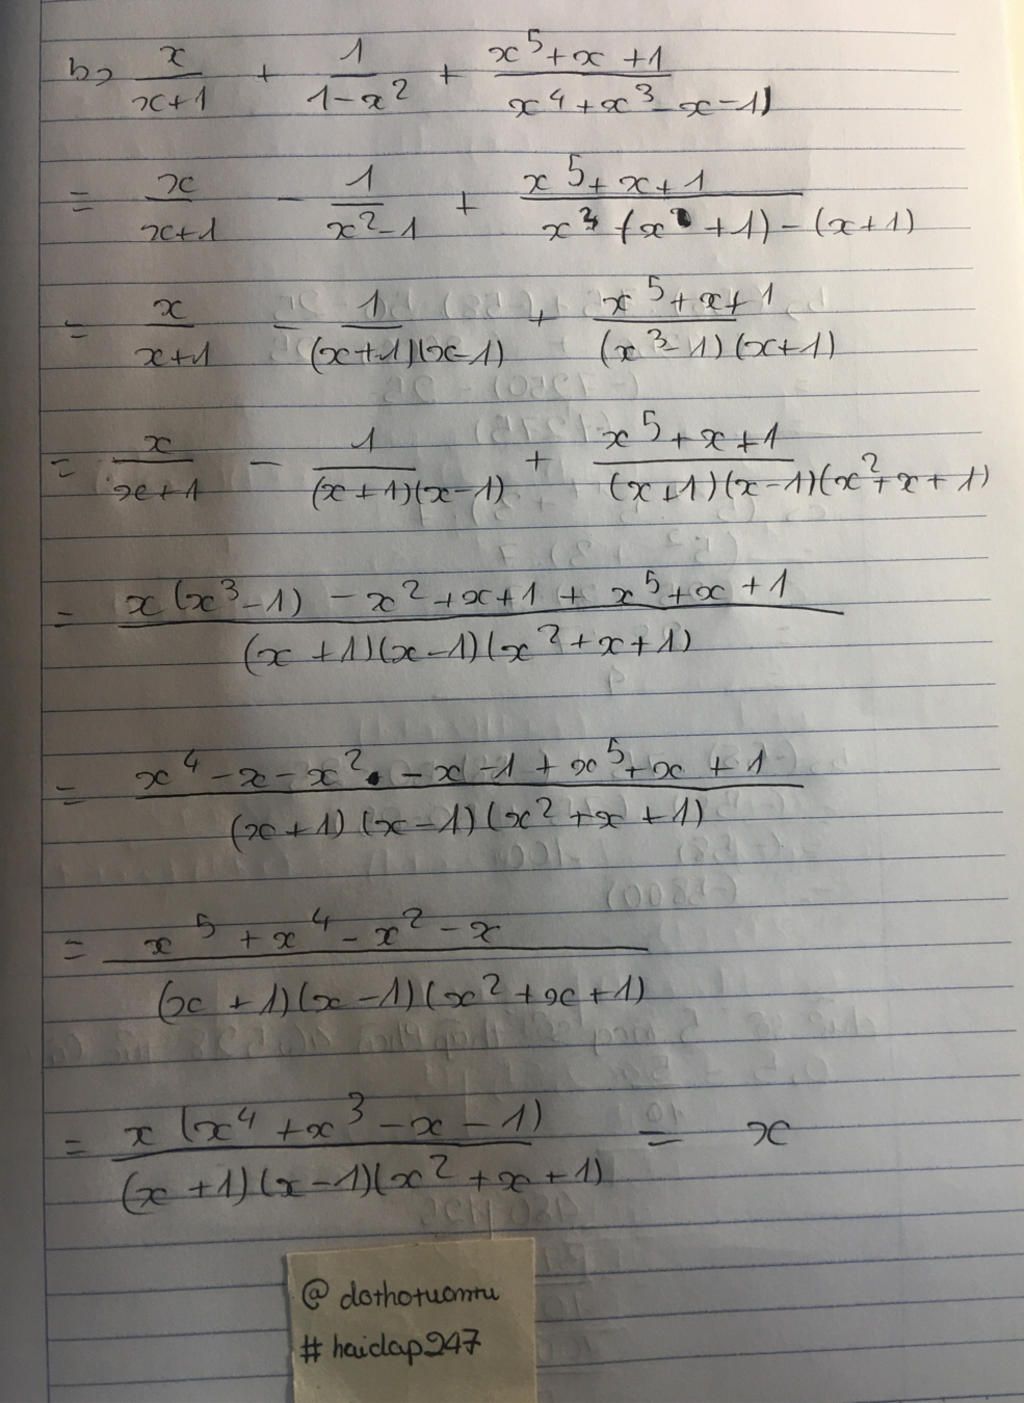 b> x/(x+1) + 1/(1-x²) + (x⁵+x+1)/(x⁴+x³-x-1)
= x/(x+1) - 1/(x²-1) + (x⁵+x+1)/(x³(x+1)-(x+1))
= x/(x+1) - 1/((x+1)(x-1)) + (x⁵+x+1)/((x³-1)(x+1))
= x/(x+1) - 1/((x+1)(x-1)) + (x⁵+x+1)/((x+1)(x-1)(x²+x+1))
= (x(x³-1) - x²+x+1 + x⁵+x+1)/((x+1)(x-1)(x²+x+1))
= (x⁴-x-x²-x-1+x⁵+x+1)/((x+1)(x-1)(x²+x+1))
= (x⁵+x⁴-x²-x)/((x+1)(x-1)(x²+x+1))
= x(x⁴+x³-x-1)/((x+1)(x-1)(x²+x+1)) = x
@ dothotuomtu
# haidap247